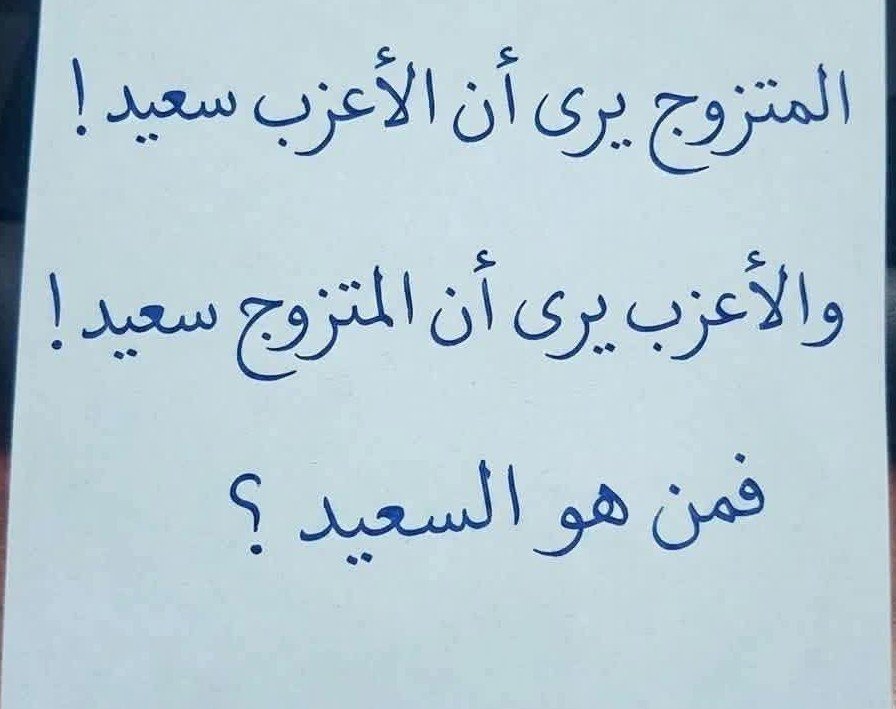 المتزوج يرى أن الأعزب سعيد !
والأعزب يرى أن المتزوج سعيد !
فمن هو السعيد ؟